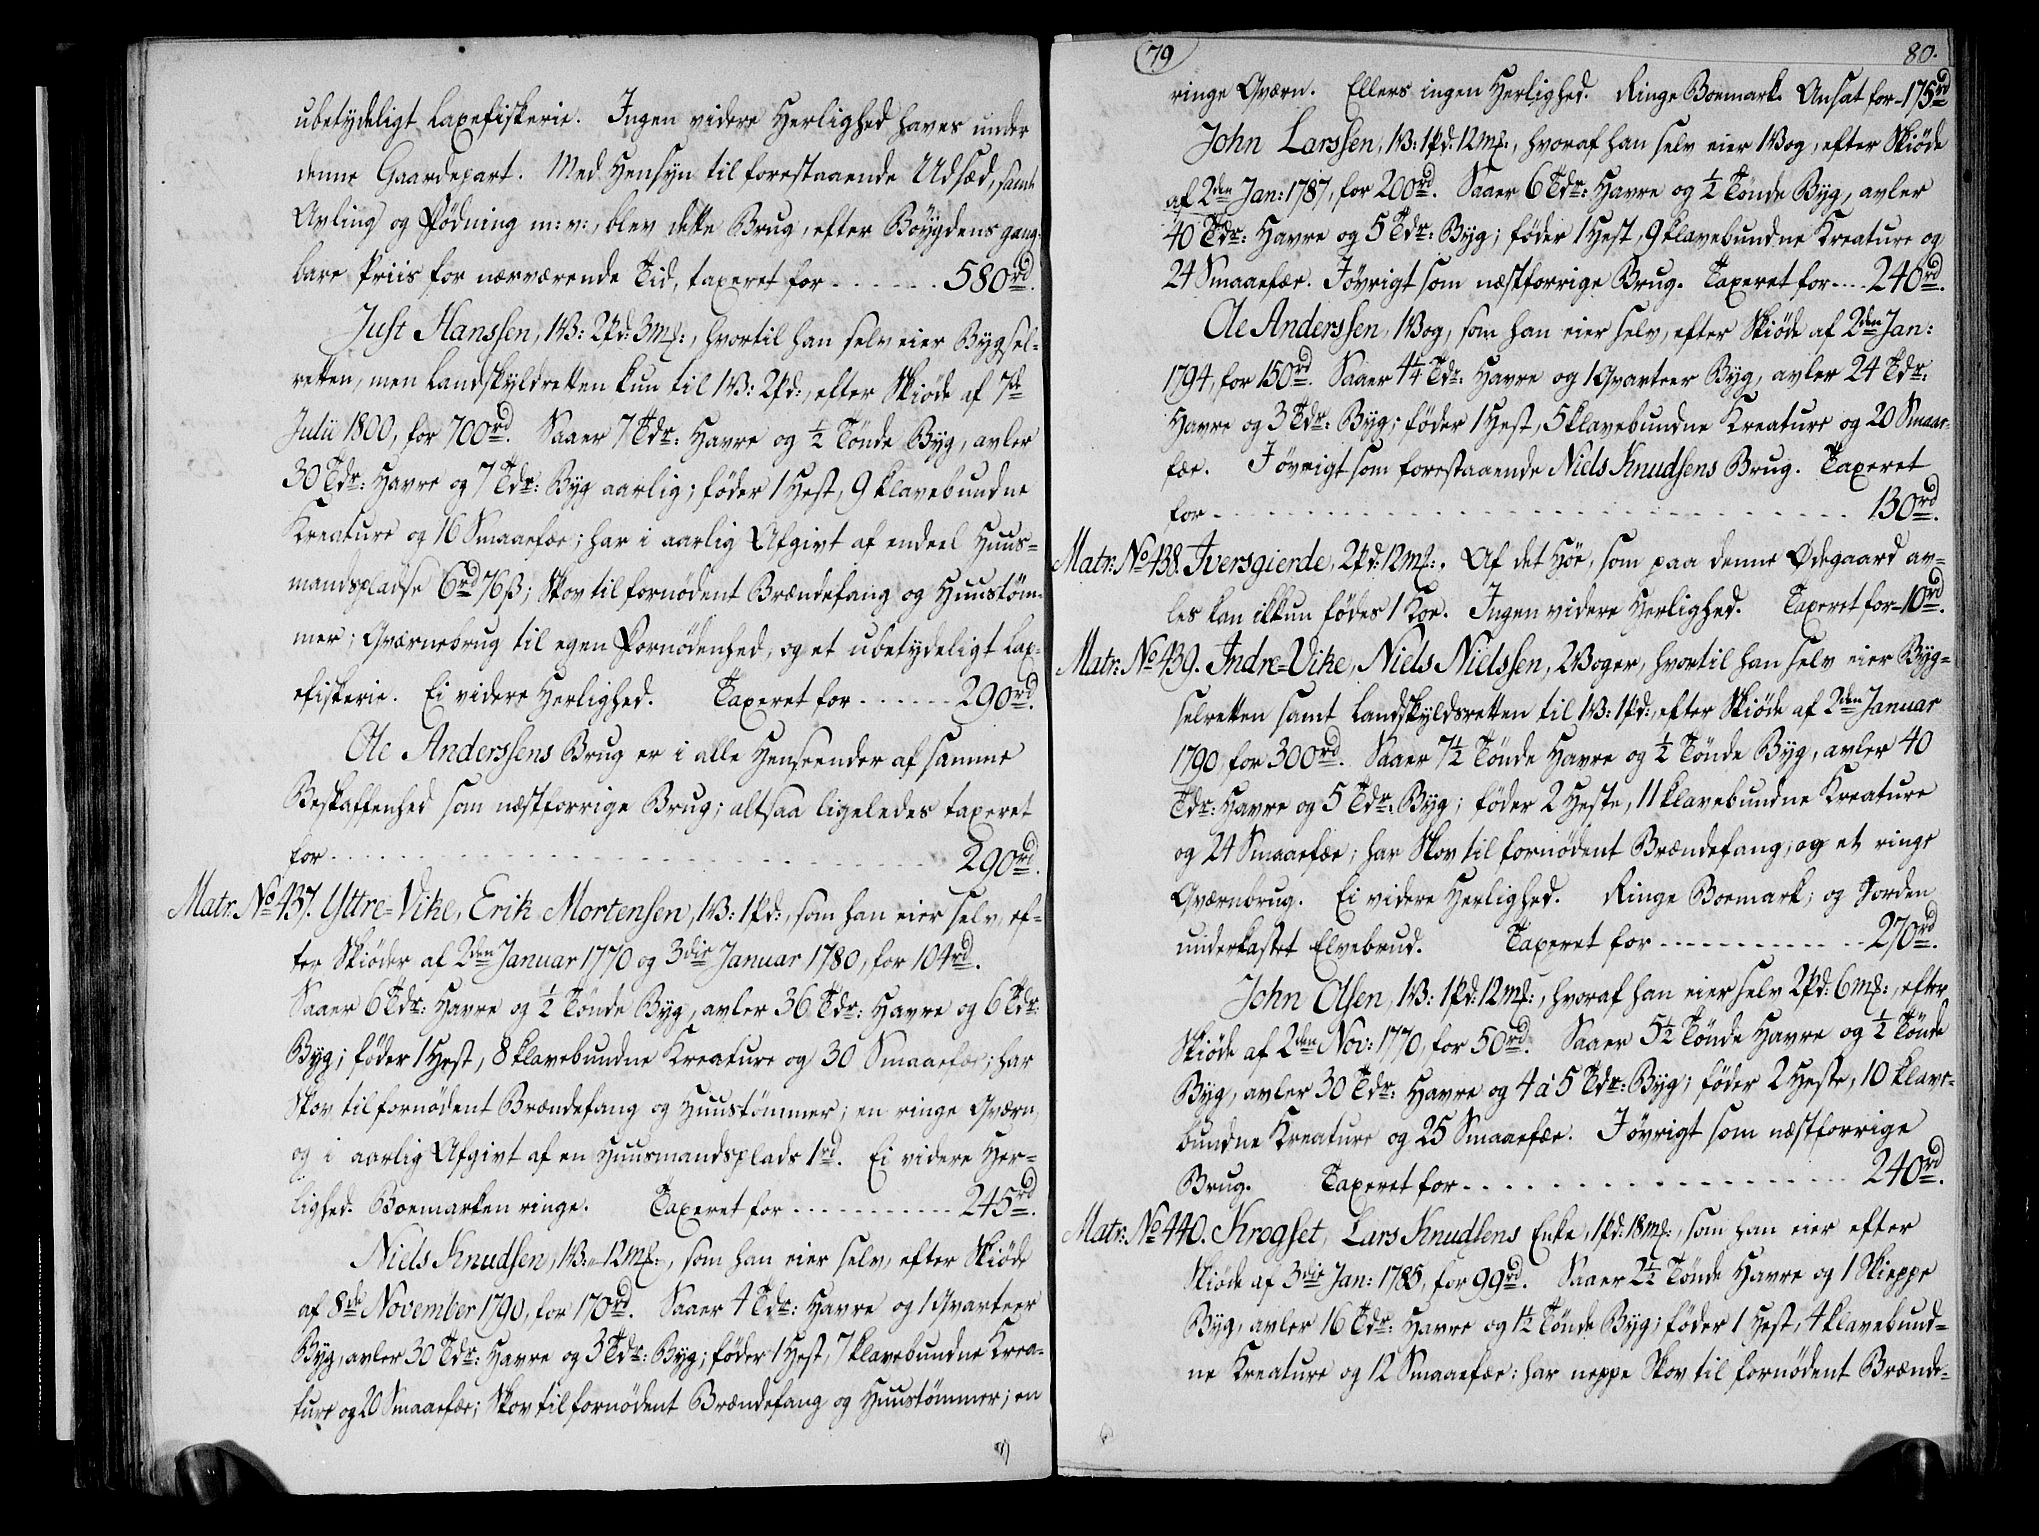 ubetydeligt Laxefiskerie. Ingen videre Herlighed haves under
denne Gaardepart. Med Hensyn til forestaaende Udsæd, samt
Avling og Födning m: v:, blev dette Brug, efter Böygdens gang-
bare Priis for nærværende Tid, taxeret for . . . . . . 580rd.
Just Hanssen, 1V: 2Pd: 3mk:, hvortil han selv eier Bygsel-
retten, men Landskyldretten kun til 1V: 2Pd:, efter Skiöde af 7de
Julii 1800, for 700rd. Saaer 7 Tdr: Havre og ½ Tönde Byg, avler
30 Tdr: Havre og 7 Tdr: Byg aarlig; föder 1 Hest, 9 klavebundne
Kreature og 16 Smaaefæe; har i aarlig Afgivt af endeel Huus-
mandspladse 6rd 76ß; Skov til fornödent Brændefang og Huustöm-
mer; Qværnebrug til egen Fornödenhed, og et ubetydeligt Lax-
efiskerie. Ei videre Herlighed. Taxeret for . . . . . . 290rd.
Ole Anderssens Brug er i alle Henseender af samme
Beskaffenhed som næstforrige Brug; altsaa ligeledes taxeret
for . . . . . . . . . . . . . . . . . . . . 290rd.
Matr: No 437. Yttre=Vike, Erik Mortensen, 1V: 1Pd:, som han eier selv, ef-
ter Skiöder af 2den Januar 1770 og 3die Januar 1780, for 104rd.
Saaer 6 Tdr: Havre og ½ Tönde Byg, avler 36 Tdr: Havre og 6 Tdr:
Byg; föder 1 Hest, 8 klavebundne Kreature og 30 Smaaefæe; har
Skov til fornödent Brændefang og Huustömmer; en ringe Qværn,
og i aarlig Afgivt af en Huusmandsplads 1rd. Ei videre Her-
lighed. Boemarken ringe. Taxeret for . . . . . . . . . 245rd.
Niels Knudsen, 1V: „ 12mk:, som han eier selv, efter Skiöde
af 8de November 1790, for 170rd. Saaer 4 Tdr: Havre og 1 Qvarteer
Byg, avler 30 Tdr: Havre og 3 Tdr: Byg; föder 1 Hest, 7 klavebundne Krea-
ture og 20 Smaaefæe; Skov til fornödent Brændefang og Huustömmer; en
79 80.
ringe Qværn. Ellers ingen Herlighed. Ringe Boemark. Ansat for - 175rd
John Larssen, 1V: 1Pd: 12mk:, hvoraf han selv eier 1 Vog, efter Skiöde
af 2den Jan: 1787, for 200rd. Saaer 6 Tdr: Havre og ½ Tönde Byg, avler
40 Tdr: Havre og 5 Tdr: Byg; föder 1 Hest, 9 klavebundne Kreature og
24 Smaaefæe. Iövrigt som næstforrige Brug. Taxeret for . . . 240rd.
Ole Anderssen, 1 Vog, som han eier selv, efter Skiöde af 2den Jan:
1794, for 150rd. Saaer 4¼ Tdr: Havre og 1 Qvarteer Byg, avler 24 Tdr:
Havre og 3 Tdr: Byg; föder 1 Hest, 5 klavebundne Kreature og 20 Smaae-
fæe. Iövrigt som forestaaende Niels Knudsens Brug. Taxeret
for . . . . . . . . . . . . . . . . . . . . 130rd.
Matr: No 438. Iversgierde, 2Pd: 12mk:. Af det Höe, som paa denne Ödegaard av-
les kan ikkun födes 1 Koe. Ingen videre Herlighed. Taxeret for - 10rd.
Matr: No 439. Indre=Vike, Niels Nielssen, 2 Voger, hvortil han selv eier Byg-
selretten samt Landskyldsretten til 1V: 1Pd:, efter Skiöde af 2den Januar
1790, for 300rd. Saaer 7½ Tönde Havre og ½ Tönde Byg, avler 40
Tdr: Havre og 5 Tdr: Byg; föder 2 Heste, 11 klavebundne Kreature
og 24 Smaaefæe; har Skov til fornödent Brændefang, og et ringe
Qværnbrug. Ei videre Herlighed. Ringe Boemark; og Jorden
underkastet Elvebrud. Taxeret for . . . . . . . . 270rd.
John Olsen, 1V: 1Pd: 12mk:, hvoraf han eier selv 2Pd: 6mk:, efter
Skiöde af 2den Nov: 1770, for 50rd. Saaer 5½ Tönde Havre og ½ Tönde
Byg, avler 30 Tdr: Havre og 4 à 5 Tdr: Byg; föder 2 Heste, 10 klave-
bundne Kreature og 25 Smaaefæe. Iövrigt som næstforrige
Brug. Taxeret for . . . . . . . . . . . . . . 240rd.
Matr: No 440. Krogset, Lars Knudsens Enke, 1Pd: 18mk:, som han eier efter
Skiöde af 3die Jan: 1785, for 99rd. Saaer 2½ Tönde Havre og 1 Skieppe
Byg, avler 16 Tdr: Havre og 1½ Tönde Byg; föder 1 Hest, 4 klavebund-
ne Kreature og 12 Smaaefæe: har neppe Skov til fornödent Brænde-